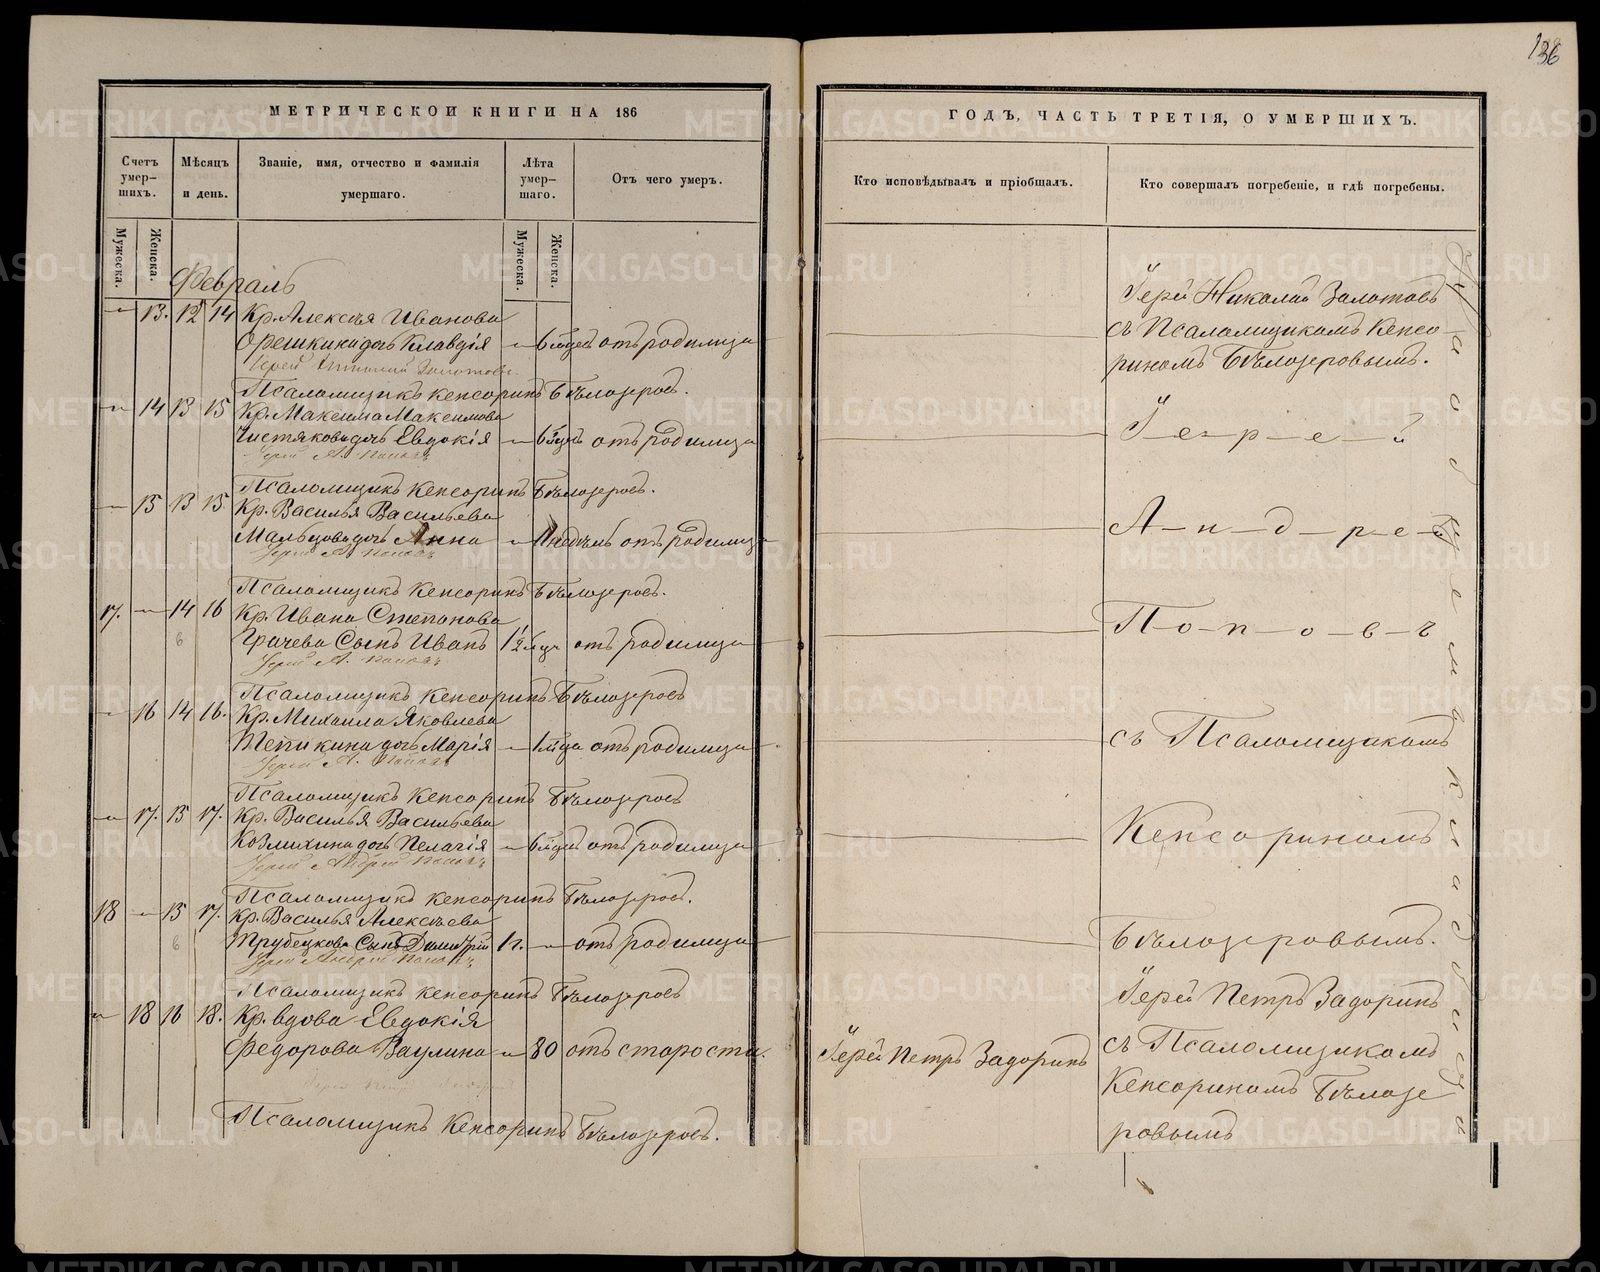 136
МЕТРИЧЕСКОЙ КНИГИ НА 186
Счетъ умер-шихъ.
Мѣсяцъ и день.
Званіе, имя, отчество и фамилія умершаго.
Лѣта умер-шаго.
Отъ чего умеръ.
Мужеска.
Женска.
Мужеска.
Женска.
Февраль
13. 12 14 Кр. Алексѣя Иванова
Орешкина дочь Клавдія 6 мцвъ отъ родимца
Іерей Золотовъ
Псаломщикъ Кенсоринъ Бѣлозеровъ.
14 13 15 Кр. Максима Максимова
Чистякова дочь Евдокія отъ родимца
Іерей А. Поповъ
Псаломщикъ Кенсоринъ Бѣлозеровъ.
15 13 15 Кр. Василья Васильева
Мальцова дочь Анна отъ родимца
Іерей А. Поповъ
Псаломщикъ Кенсоринъ Бѣлозеровъ.
17. 14 16 Кр. Ивана Степанова
6 Грачева Сынъ Иванъ 1½ отъ родимца
Іерей А. Поповъ
Псаломщикъ Кенсоринъ Бѣлозеровъ
16 14 16. Кр. Михаила Яковлева
дочь Марія отъ родимца
Іерей А. Поповъ
Псаломщикъ Кенсоринъ Бѣлозеровъ
17. 15 17. Кр. Василья Васильева
дочь Пелагія отъ родимца
Іерей Андрей Поповъ
Псаломщикъ Кенсоринъ Бѣлозеровъ.
18 15 17. Кр. Василья Алексѣева
6 Трубецкова Сынъ Димитрій 1 г. отъ родимца
Іерей Андрей Поповъ
Псаломщикъ Кенсоринъ Бѣлозеровъ
18 16 18. Кр. вдова Евдокія
Федорова Ваулина 80 отъ старости.
Псаломщикъ Кенсоринъ Бѣлозеровъ.
ГОДЪ, ЧАСТЬ ТРЕТІЯ, О УМЕРШИХЪ.
Кто исповѣдывалъ и пріобщалъ.
Кто совершалъ погребеніе, и гдѣ погребены.
Іерей Николай Золотовъ
съ Псаломщикомъ Кенсо-
риномъ Бѣлозеровымъ.
І-е-р-е-й
А-н-д-р-е-й
П-о-п-о-в-ъ
съ Псаломщикомъ
Кенсориномъ
Бѣлозеровымъ.
Іерей Петръ Задоринъ
Іерей Петръ Задоринъ
съ Псаломщикомъ
Кенсориномъ Бѣлозе
ровымъ
METRIKI.GASO-URAL.RU